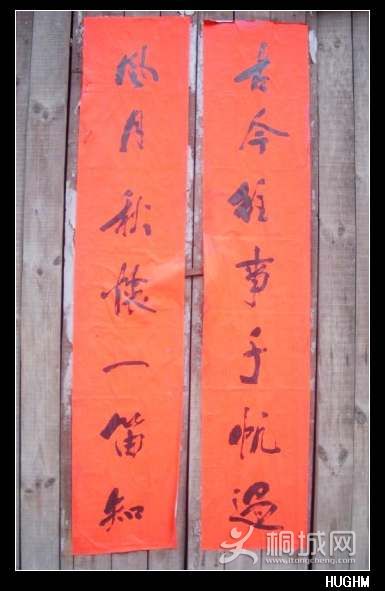 古今往事千帆過
风月秋懷一笛知
桐城网
itongcheng.com
HUGHM